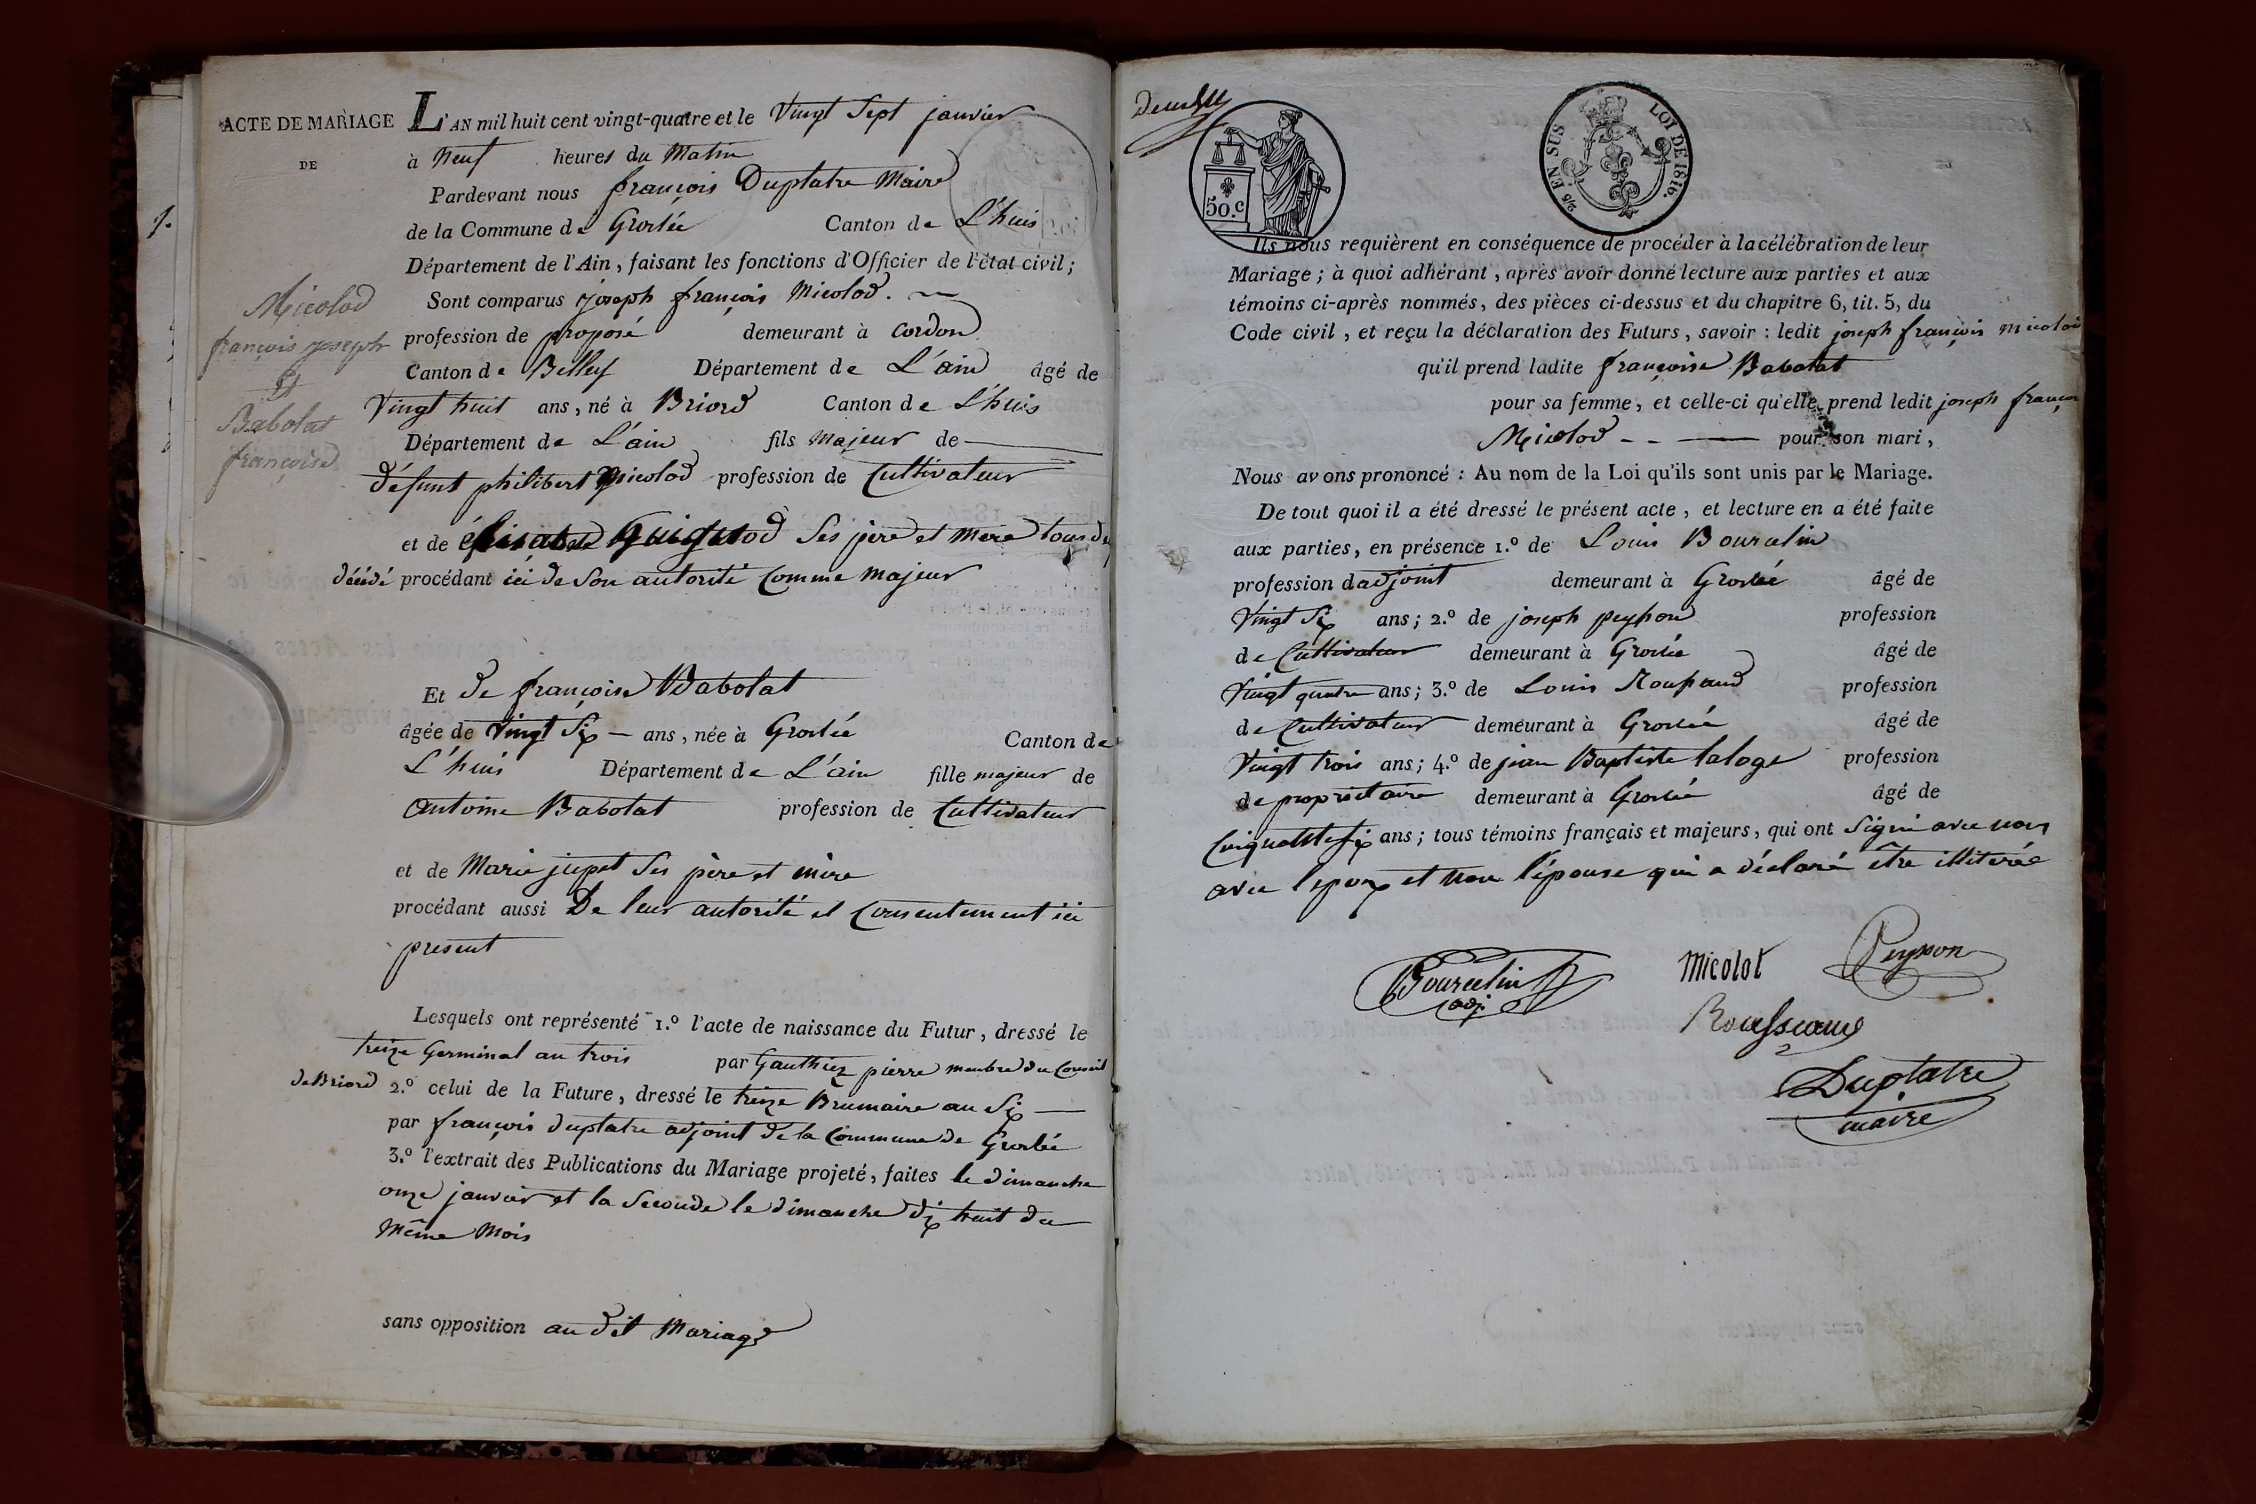 ACTE DE MARIAGE
DE
Micolod
françois joseph
Et
Babolat
françoise
1.
L'AN mil huit cent vingt-quatre et le Vingt Sept janvier
à Neuf heures du Matin
Pardevant nous françois Duplatre Maire
de la Commune de Groslée Canton de L'huis
Département de l'Ain, faisant les fonctions d'Officier de l'état civil;
Sont comparus joseph françois Micolod.
profession de proposé demeurant à Cordon
Canton de Belley Département de L'ain âgé de
Vingt huit ans, né à Briord Canton de L'huis
Département de L'ain fils Majeur de
défunt philibert Micolod profession de Cultivateur
et de Ses père et Mère tous
décédé procédant ici de Son autorité Comme Majeur
Et de françoise Babolat
âgée de Vingt Six ans, née à Groslée Canton de
L'huis Département de L'ain fille majeur de
antoine Babolat profession de Cultivateur
et de Marie jupet Ses père et mère
procédant aussi De leur autorité et Consentement ici
present
Lesquels ont représenté 1.º l'acte de naissance du Futur, dressé le
treize Germinal an trois par Gauthier pierre membre du Conseil
de Briord 2.º celui de la Future, dressé le treize Brumaire an Six
par françois duplatre adjoint de la Commune de Groslée
3.º l'extrait des Publications du Mariage projeté, faites le dimanche
onze janvier et la Seconde le dimanche dix huit du
Même Mois
sans opposition au dit Mariage
50.C
2/5 EN SUS
LOI DE 1816.
Ils nous requièrent en conséquence de procéder à la célébration de leur
Mariage; à quoi adhérant, après avoir donné lecture aux parties et aux
témoins ci-après nommés, des pièces ci-dessus et du chapitre 6, tit. 5, du
Code civil, et reçu la déclaration des Futurs, savoir: ledit joseph françois micolod
qu'il prend ladite françoise Babolat
pour sa femme, et celle-ci qu'elle prend ledit joseph françois
Micolod pour son mari,
Nous avons prononcé: Au nom de la Loi qu'ils sont unis par le Mariage.
De tout quoi il a été dressé le présent acte, et lecture en a été faite
aux parties, en présence 1.º de Louis Bourcelin
profession d'adjoint demeurant à Groslée âgé de
Vingt Six ans; 2.º de joseph peysson profession
de Cultivateur demeurant à Groslée âgé de
Vingt quatre ans; 3.º de Louis profession
de Cultivateur demeurant à Groslée âgé de
Vingt trois ans; 4.º de jean Baptiste laloge profession
de propriétaire demeurant à Groslée âgé de
ans; tous témoins français et majeurs, qui ont Signé avec nous
avec l'epoux et non l'épouse qui a déclaré être illiterée
Bourcelin
adj.
Micolot
Peysson
Duplatre
maire